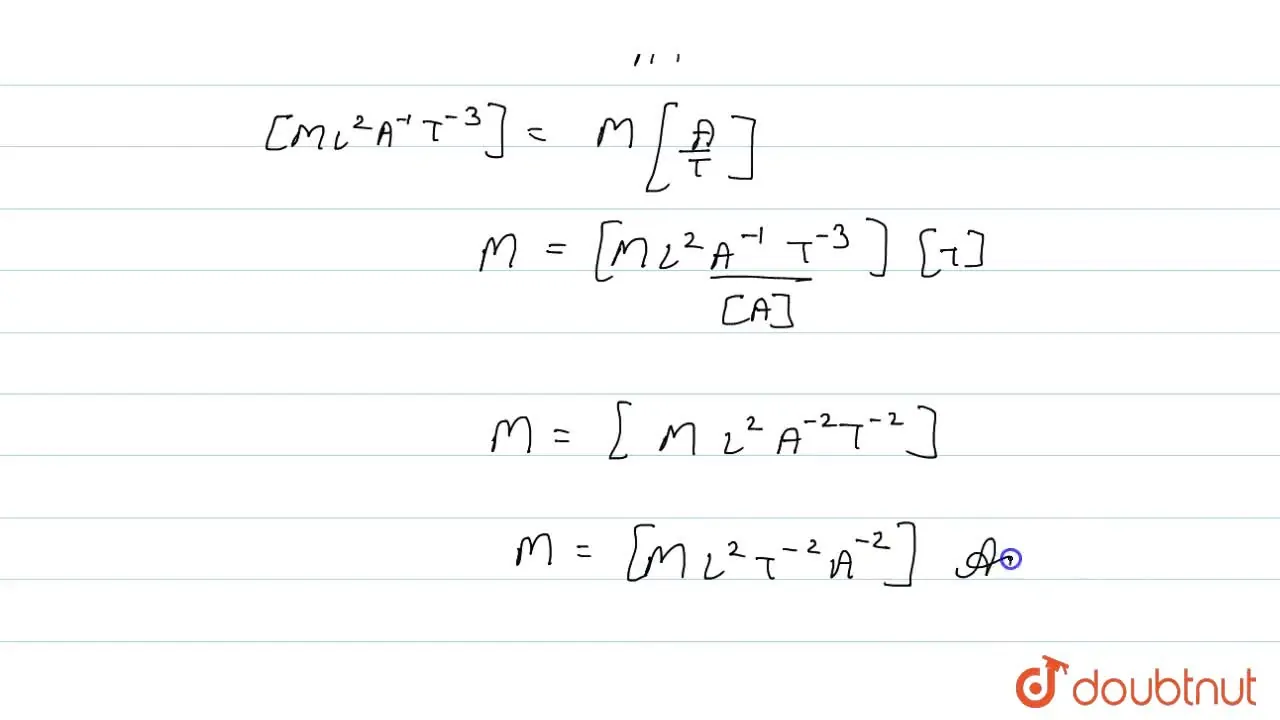 [ML²A⁻¹T⁻³] = M[A/T]
M = [ML²A⁻¹T⁻³] [T]
[A]
M = [ML²A⁻²T⁻²]
M = [ML²T⁻²A⁻²]
doubtnut